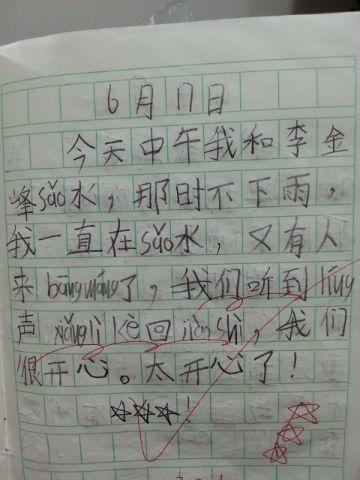 6月17日
今天中午我和李金
峰sǎo水，那时不下雨，
我一直在sǎo水，又有人
来bāngmáng了，我们听到líng
声xiǎng lì kè回jiào shì，我们
很开心。太开心了！
☆☆☆！